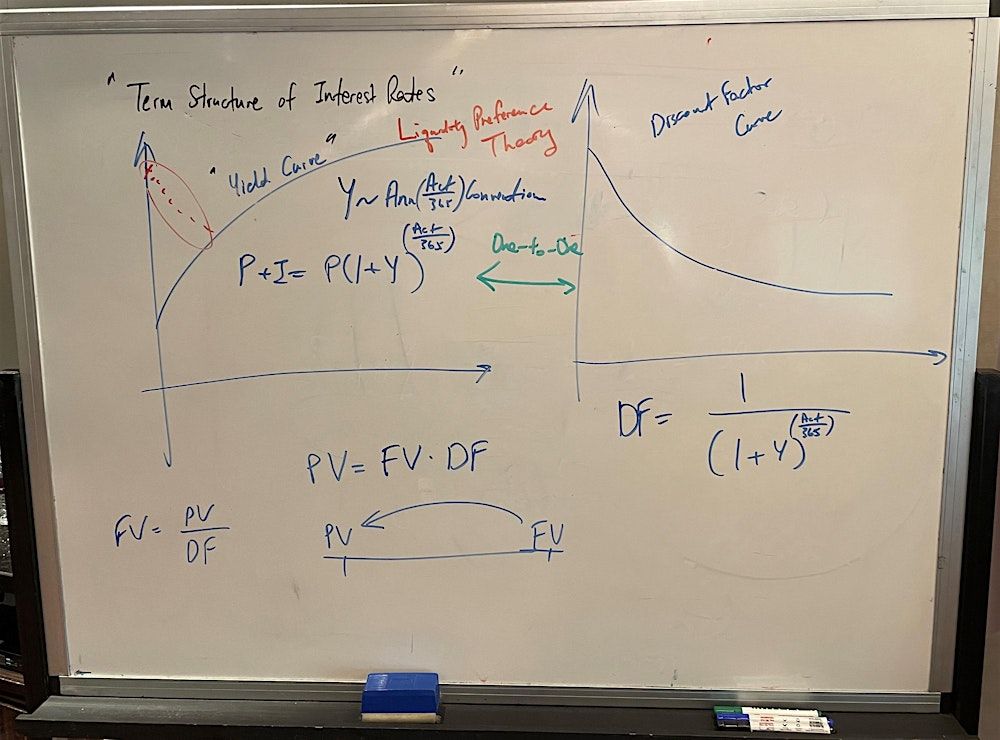 " Term Structure of Interest Rates "
Liquidity Preference
Theory
" Yield Curve "
Y ~ Ann (Act/365) Convention
P + I = P(1+Y)^(Act/365)
One-to-One
Discount Factor
Curve
DF = 1/(1+Y)^(Act/365)
PV = FV · DF
FV = PV/DF
PV FV